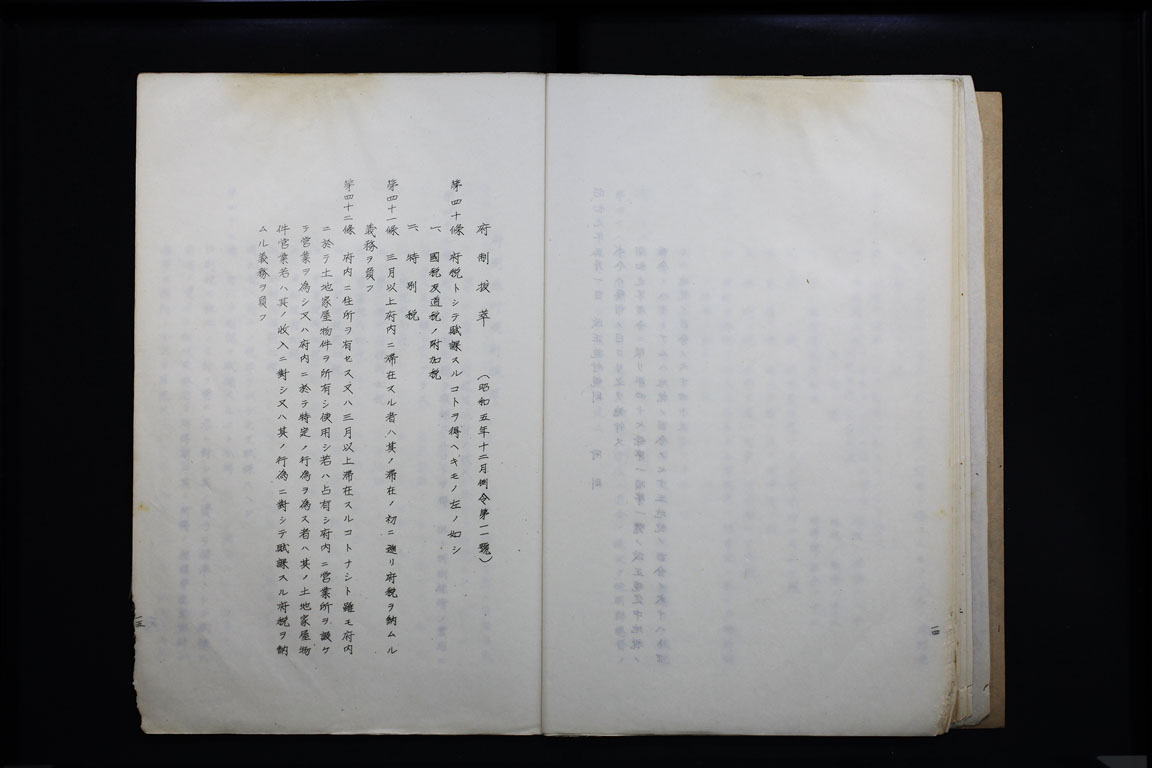 府制拔萃　（昭和五年十二月制令第一一號）
第四十條　府税トシテ賦課スルコトヲ得ヘキモノ左ノ如シ
一、國税及道税ノ附加税
二、特別税
第四十一條　三月以上府内ニ滯在スル者ハ其ノ滯在ノ初ニ遡リ府税ヲ納ムル
義務ヲ負フ
第四十二條　府内ニ住所ヲ有セス又ハ三月以上滯在スルコトナシト雖モ府内
ニ於テ土地家屋物件ヲ所有シ使用シ若ハ占有シ府内ニ營業所ヲ設ケ
テ營業ヲ爲シ又ハ府内ニ於テ特定ノ行爲ヲ爲ス者ハ其ノ土地家屋物
件營業若ハ其ノ收入ニ對シ又ハ其ノ行爲ニ對シテ賦課スル府税ヲ納
ムル義務ヲ負フ
一五